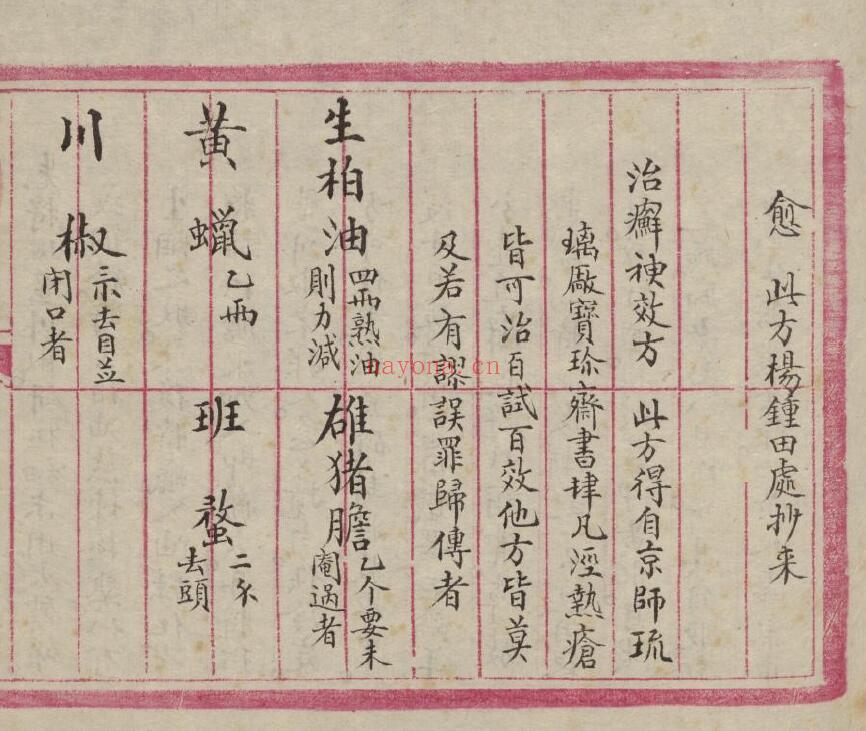 愈 此方楊鍾田處抄来
治癬神效方 此方得自京師琉
璃厰寶珍齋書肆凡溼熱瘡
皆可治百試百效他方皆莫
及若有謬誤罪歸傳者
生柏油 四兩熟油 則力減 雄猪膽 乙个要未 閹過者
黃蠟 乙兩 班蝥 二 去頭
川椒 三 去目並 閉口者
nayona.cn